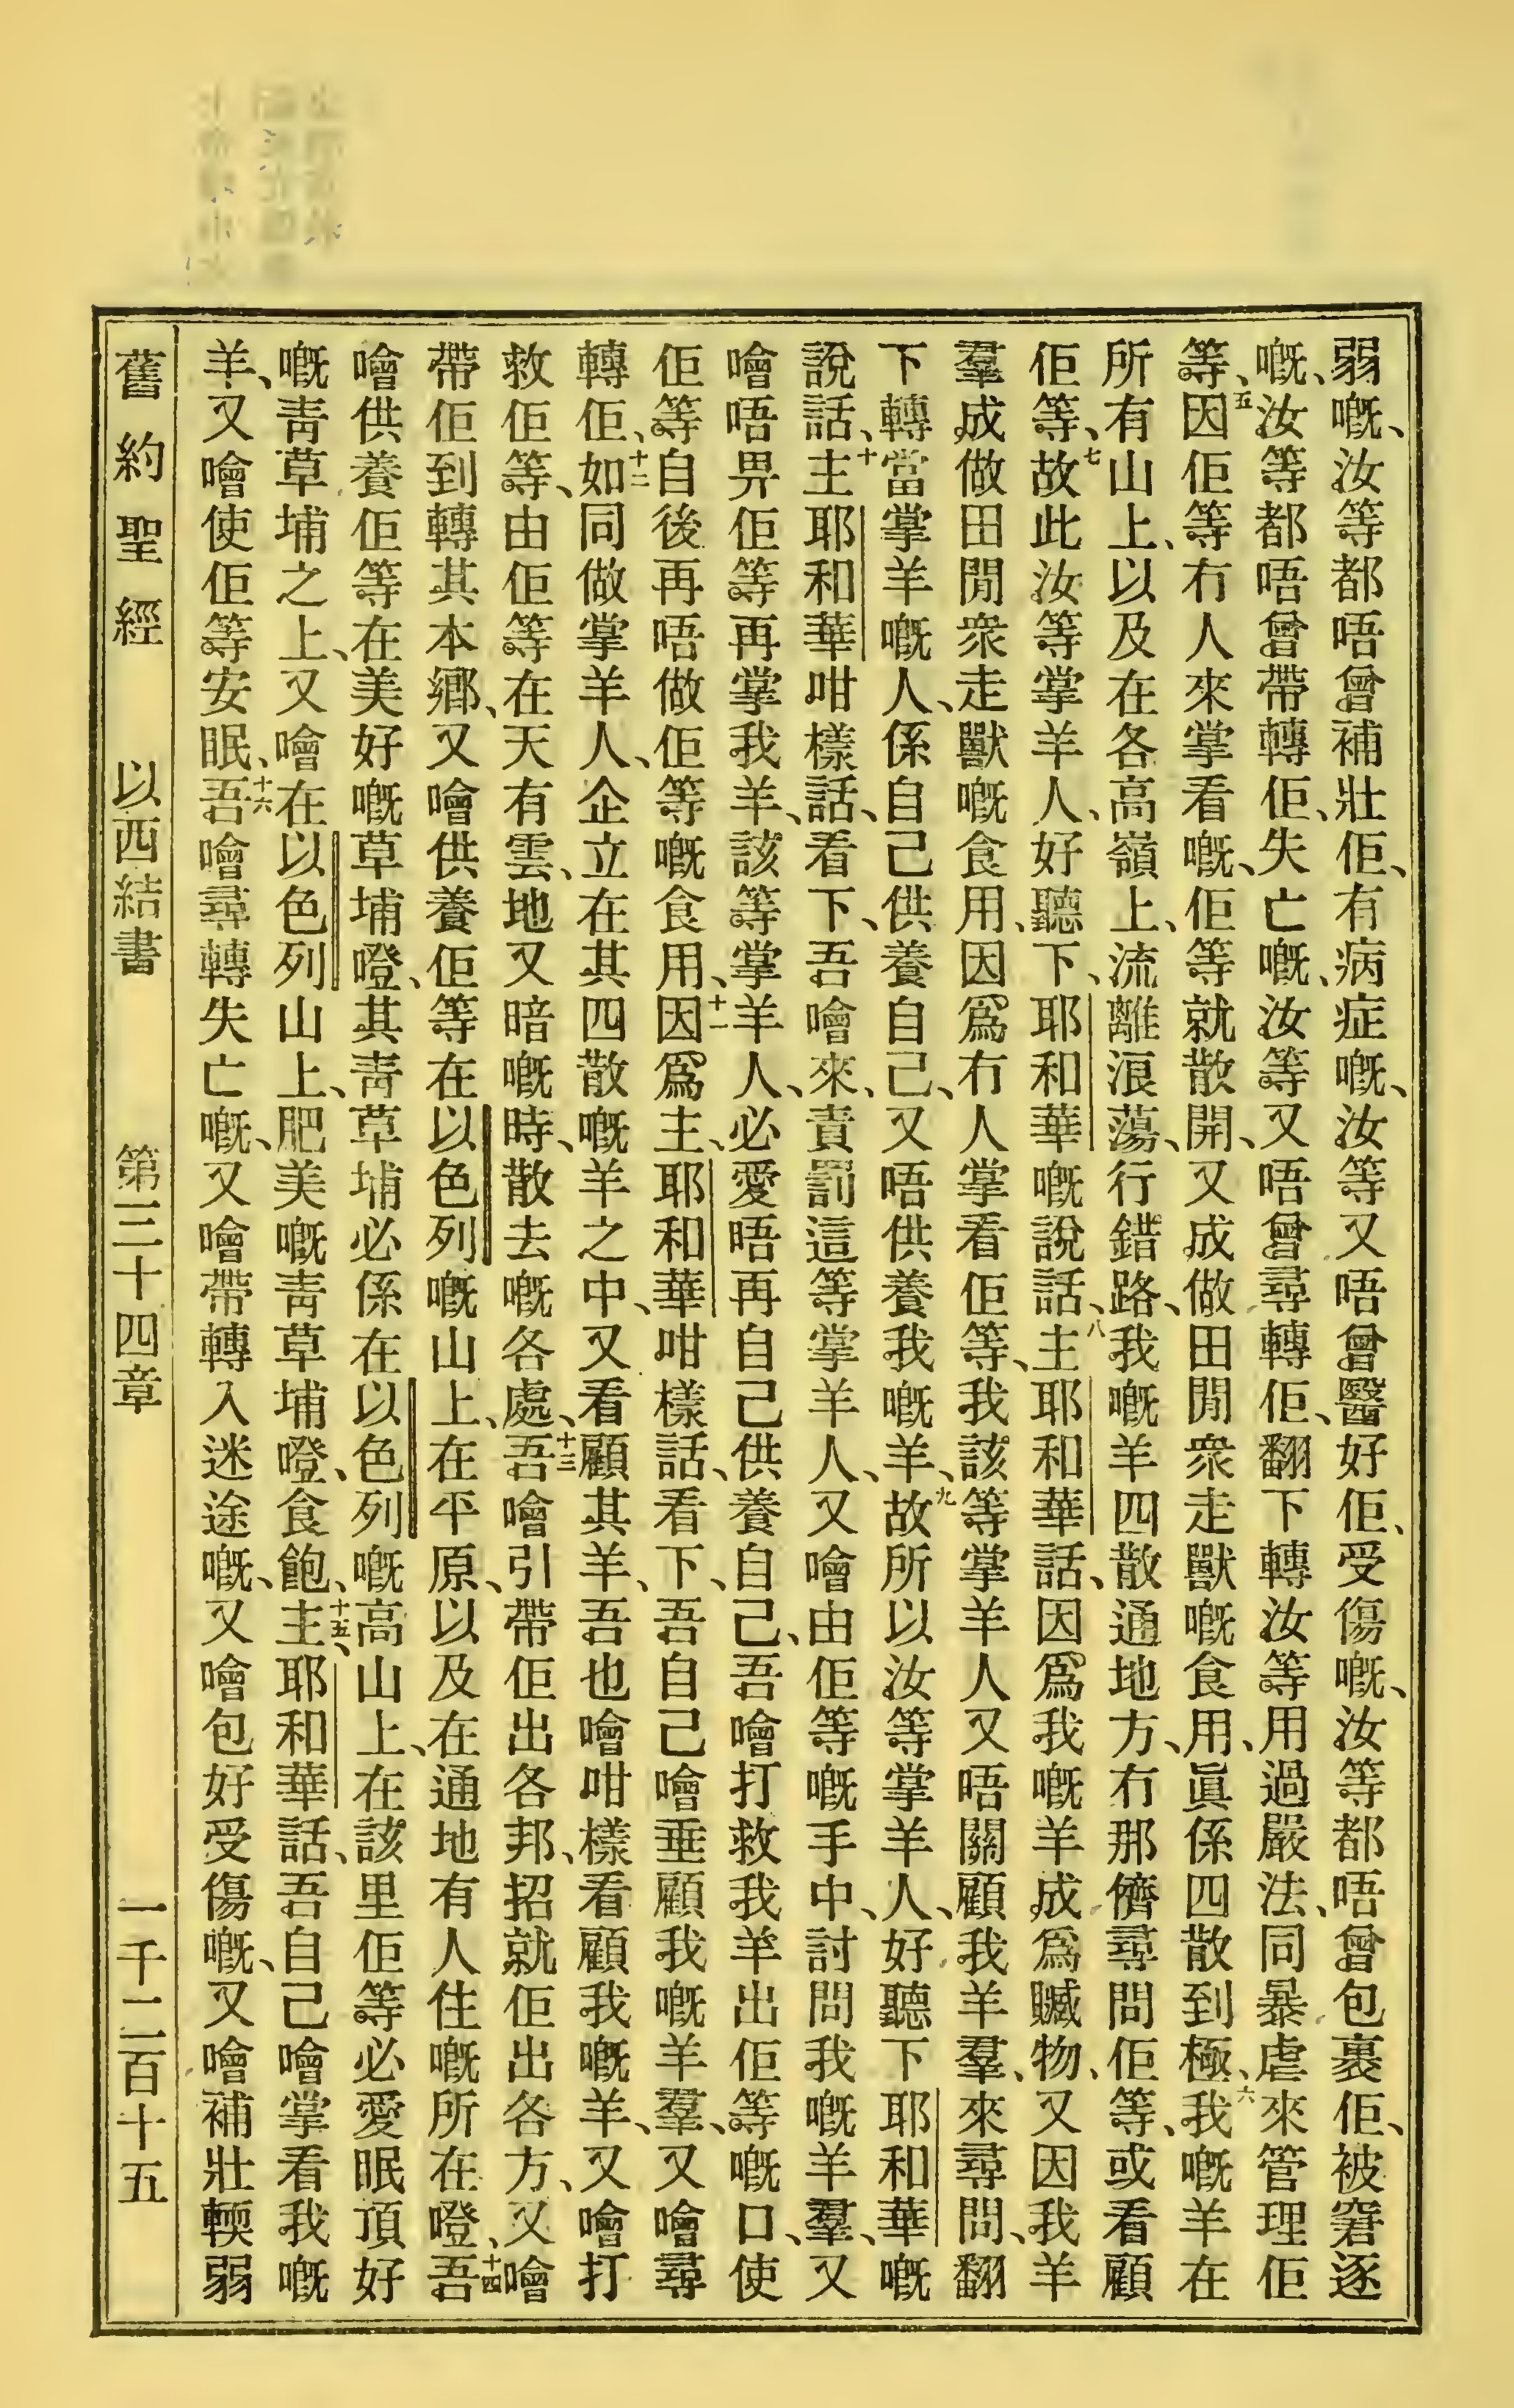 弱嘅、汝等都唔曾補壯佢、有病症嘅、汝等又唔曾醫好佢、受傷嘅、汝等都唔曾包裹佢、被窘逐
嘅、汝等都唔曾帶轉佢、失亡嘅、汝等又唔曾尋轉佢、翻下轉汝等用過嚴法、同暴虐來管理佢
等、五因佢等冇人來掌看嘅、佢等就散開、又成做田閒衆走獸嘅食用、眞係四散到極、六我嘅羊在
所有山上、以及在各高嶺上、流離浪蕩、行錯路、我嘅羊四散通地方、冇那儕尋問佢等、或看顧
佢等、七故此汝等掌羊人、好聽下、耶和華嘅說話、八主耶和華話、因爲我嘅羊成爲贓物、又因我羊
羣成做田閒衆走獸嘅食用、因爲冇人掌看佢等、我該等掌羊人又唔關顧我羊羣、來尋問、翻
下轉當掌羊嘅人、係自己供養自己、又唔供養我嘅羊、九故所以汝等掌羊人、好聽下耶和華嘅
說話、十主耶和華咁樣話、看下、吾噲來、責罰這等掌羊人、又噲由佢等嘅手中、討問我嘅羊羣、又
噲唔畀佢等再掌我羊、該等掌羊人、必愛唔再自己供養自己、吾噲打救我羊出佢等嘅口、使
佢等自後再唔做佢等嘅食用、十一因爲主、耶和華咁樣話、看下、吾自己噲垂顧我嘅羊羣、又噲尋
轉佢、十二如同做掌羊人、企立在其四散嘅羊之中、又看顧其羊、吾也噲咁樣看顧我嘅羊、又噲打
救佢等、由佢等在天有雲、地又暗嘅時、散去嘅各處、十三吾噲引帶佢出各邦、招就佢出各方、又噲
帶佢到轉其本鄉、又噲供養佢等在以色列嘅山上、在平原、以及在通地有人住嘅所在噔、十四吾
噲供養佢等在美好嘅草埔噔、其靑草埔必係在以色列嘅高山上、在該里佢等必愛眠頂好
嘅靑草埔之上、又噲在以色列山上、肥美嘅靑草埔噔、食飽、十五主、耶和華話、吾自己噲掌看我嘅
羊、又噲使佢等安眠、十六吾噲尋轉失亡嘅、又噲帶轉入迷途嘅、又噲包好受傷嘅、又噲補壯輭弱
舊約聖經 以西結書 第三十四章 一千二百十五